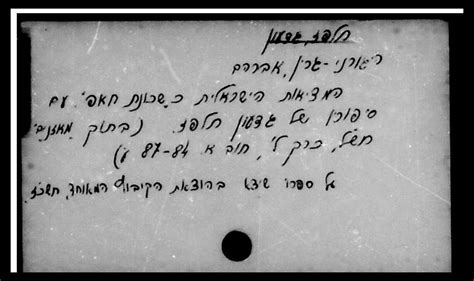 תלפז, גדעון
ריגורני-גרין, אברהם
המציאות הישראלית כ שכונת חאפ' עם
סיפורו של גדעון תלפז. (בתוך מאזנים
תש"ל, כרך ל', חוב א. 84-87 ע')
על ספרו שיצא בהוצאת הקיבוץ המאוחד, תשכ"ז